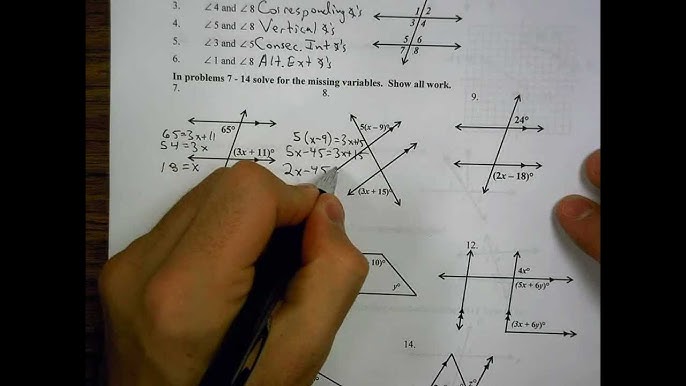 3. ∠4 and ∠8 Corresponding ∠'s
4. ∠5 and ∠8 Vertical ∠'s
5. ∠3 and ∠5 Consec. Int ∠'s
6. ∠1 and ∠8 Alt. Ext ∠'s
1 2
3 4
5 6
7 8
In problems 7 - 14 solve for the missing variables. Show all work.
7.
65°
(3x + 11)°
65=3x+11
54=3x
18=x
8.
5(x – 9)°
(3x + 15)°
5(x-9)=3x+15
5x-45=3x+15
2x-45
9.
24°
(2x – 18)°
10)°
y°
12.
4x°
(5x + 6y)°
(3x + 6y)°
14.